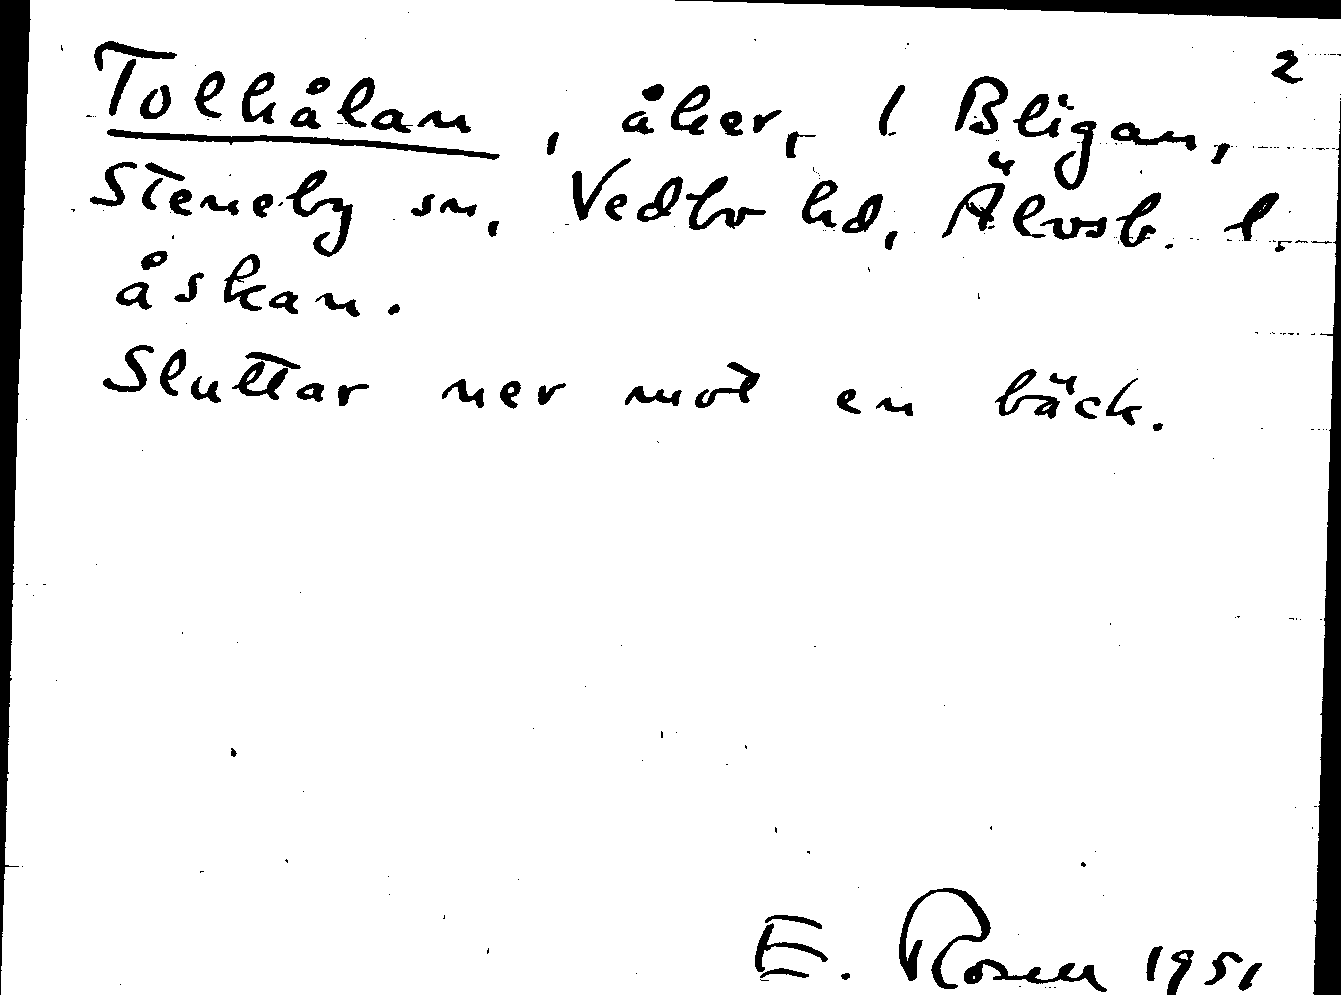 2
Tolhålan, åker, 1 Bligan,
Steneby sn, Vedbo hd, Älvsb. l.
åskan.
Sluttar ner mot en bäck.
E. Rosell 1951